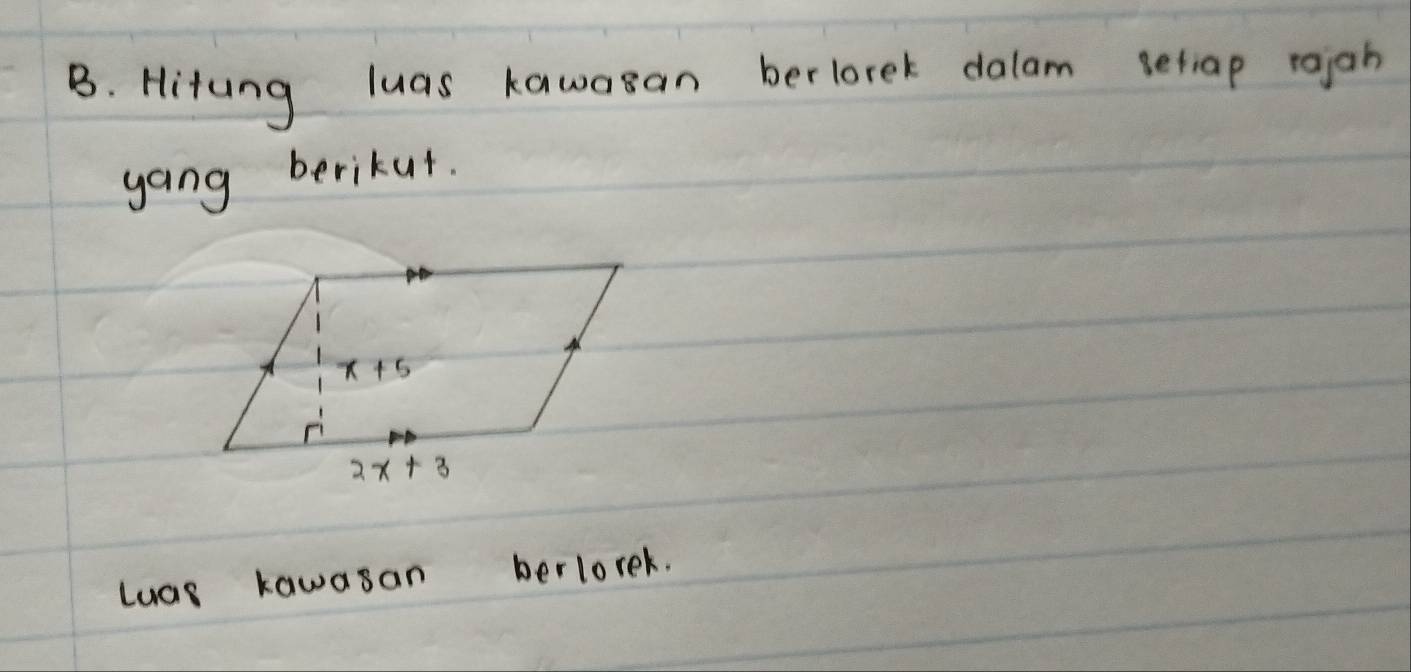 B. Hitung luas kawasan berlorek dalam setiap rajah
yang berikut.
x + 5
2x + 3
Luas kawasan berlorek.